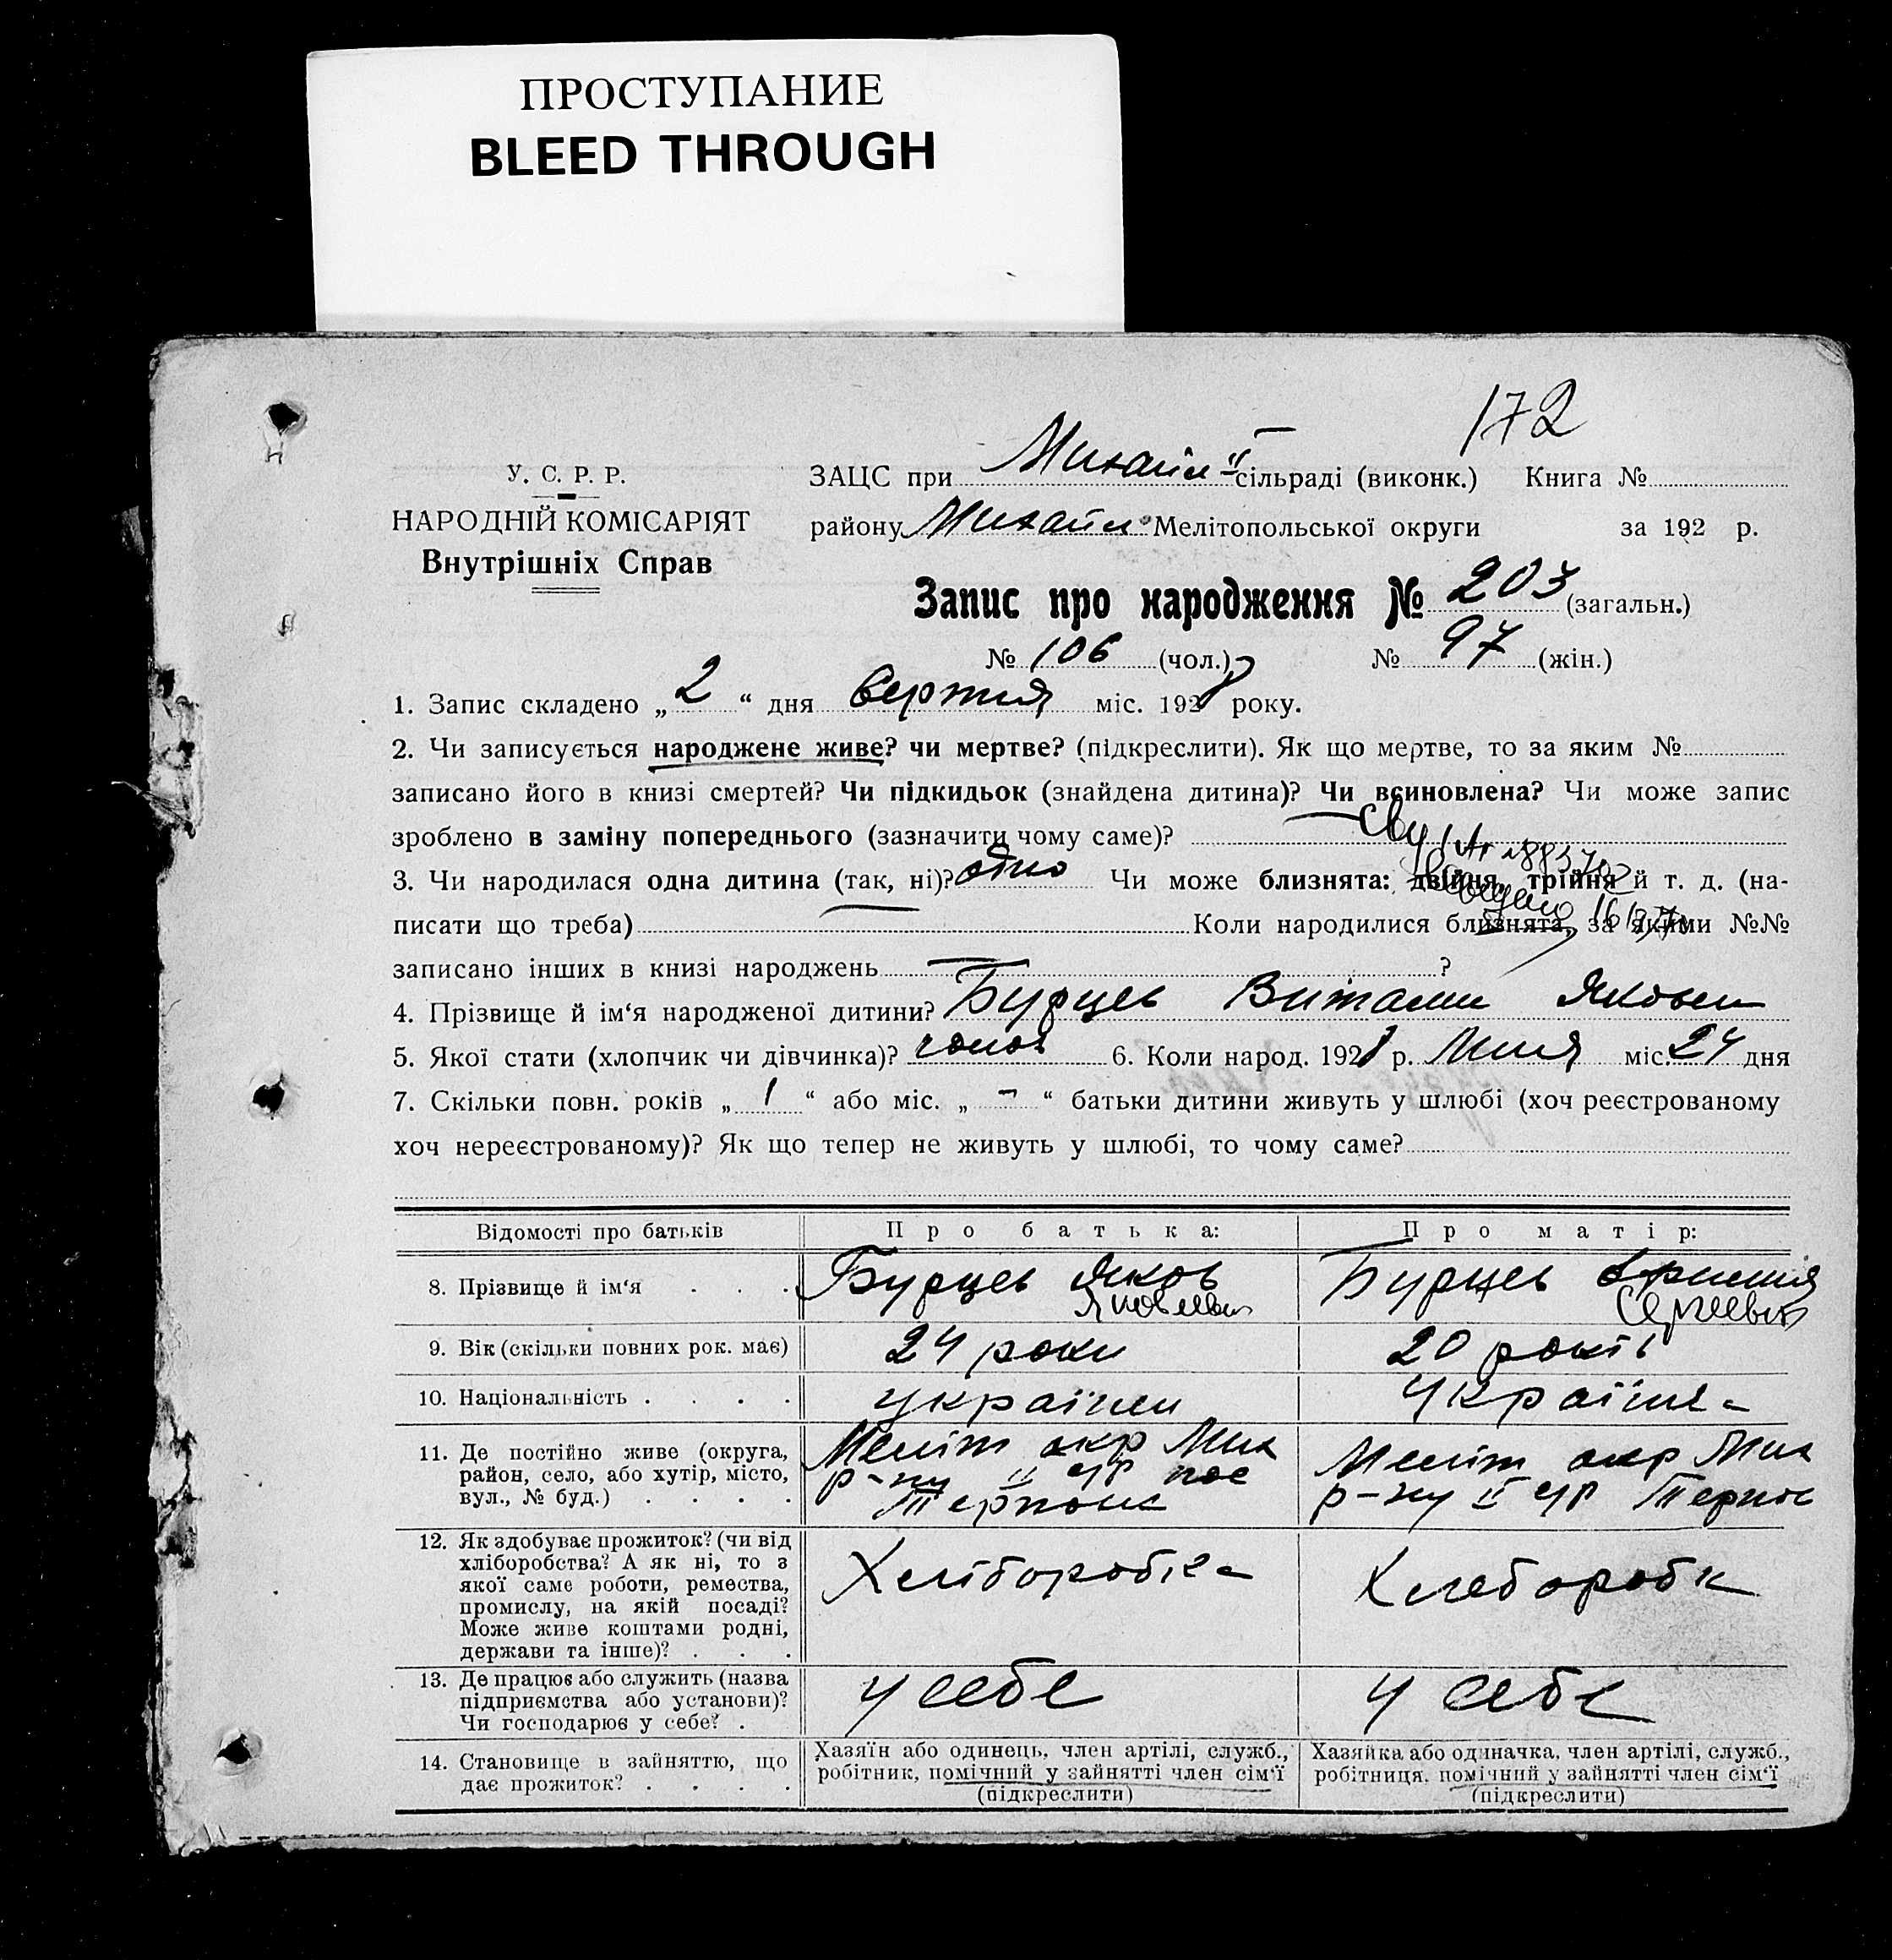 ПРОСТУПАНИЕ
BLEED THROUGH
172
У. С. Р. Р.
НАРОДНІЙ КОМІСАРІЯТ
Внутрішніх Справ
ЗАЦС при Михайл II сільраді (виконк.) Книга №
району Михайл Мелітопольської округи за 192 р.
Запис про народження № 203 (загальн.)
№ 106 (чол.) № 97 (жін.)
1. Запис складено „ 2 “ дня Серпня міс. 1928 року.
2. Чи записується народжене живе? чи мертве? (підкреслити). Як що мертве, то за яким №
записано його в книзі смертей? Чи підкидьок (знайдена дитина)? Чи всиновлена? Чи може запис
зроблено в заміну попереднього (зазначити чому саме)?
3. Чи народилася одна дитина (так, ні)? одно Чи може близнята: двійня, трійня й т. д. (на-
писати що треба) Коли народилися близнята, за якими №№
записано інших в книзі народжень ?
4. Прізвище й ім‘я народженої дитини? Бурцев Витали Яковл
5. Якої стати (хлопчик чи дівчинка)? 6. Коли народ. 1928 р. Липня міс. 24 дня
7. Скільки повн. років „ 1 “ або міс. „ - “ батьки дитини живуть у шлюбі (хоч реєстрованому
хоч нереєстрованому)? Як що тепер не живуть у шлюбі, то чому саме?
Відомості про батьків Про батька: Про матір:
8. Прізвище й ім‘я . . . Бурцев Яков Бурцев
Яковлевич Сергеевна
9. Вік (скільки повних рок. має) 24 роки 20 років
10. Національність . . . . українц україн-
11. Де постійно живе (округа,
район, село, або хутір, місто,
вул., № буд.) . . . .
Меліт окр Мих
р-ну II с/р пос
Терпон
Меліт окр Мих
р-ну II с/р Терпон
12. Як здобуває прожиток? (чи від
хліборобства? А як ні, то з
якої саме роботи, ремества,
промислу, на якій посаді?
Може живе коштами родні,
держави та інше)? . . .
Хліборобка
Хлеборобк
13. Де працює або служить (назва
підприємства або установи)?
Чи господарює у себе? .
у себе
у себе
14. Становище в зайняттю, що
дає прожиток? . . . .
Хазяїн або одинець, член артілі, служб.,
робітник, помічний у зайнятті член сім‘ї
(підкреслити)
Хазяйка або одиначка, член артілі, служб.,
робітниця, помічний у зайнятті член сім‘ї
(підкреслити)